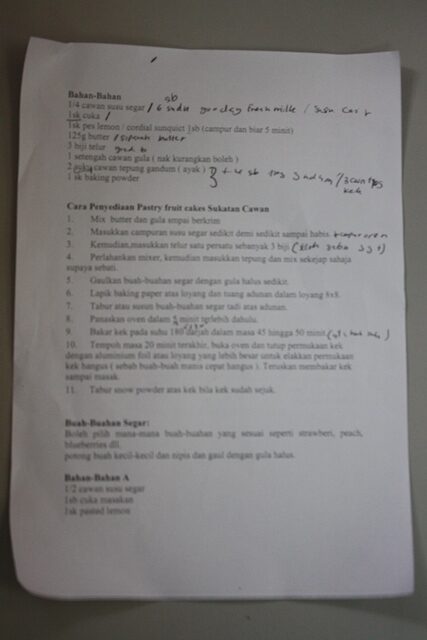 Bahan-Bahan
sb
1/4 cawan susu segar / 6 sudu goodday fresh milk / susu cair
1sk cuka /
1sk pes lemon / cordial sunquict 1sb (campur dan biar 5 minit)
125g butter / butter
3 biji telur
1 setengah cawan gula ( nak kurangkan boleh )
2 cawan tepung gandum ( ayak ) } + 4 sb
1 sk baking powder kek
Cara Penyediaan Pastry fruit cakes Sukatan Cawan
1. Mix butter dan gula smpai berkrim
2. Masukkan campuran susu segar sedikit demi sedikit sampai habis.
3. Kemudian,masukkan telur satu persatu sebanyak 3 biji
4. Perlahankan mixer, kemudian masukkan tepung dan mix sekejap sahaja
supaya sebati.
5. Gaulkan buah-buahan segar dengan gula halus sedikit.
6. Lapik baking paper atas loyang dan tuang adunan dalam loyang 8x8.
7. Tabur atau susun buah-buahan segar tadi atas adunan.
8. Panaskan oven dalam minit terlebih dahulu.
9. Bakar kek pada suhu 180 darjah dalam masa 45 hingga 50 minit
10. Tempoh masa 20 minit terakhir, buka oven dan tutup permukaan kek
dengan aluminium foil atau loyang yang lebih besar untuk elakkan permukaan
kek hangus ( sebab buah-buah manis cepat hangus ). Teruskan membakar kek
sampai masak.
11. Tabur snow powder atas kek bila kek sudah sejuk.
Buah-Buahan Segar:
Boleh pilih mana-mana buah-buahan yang sesuai seperti strawberi, peach,
blueberries dll.
potong buah kecil-kecil dan nipis dan gaul dengan gula halus.
Bahan-Bahan A
1/2 cawan susu segar
1sb cuka masakan
1sk pasted lemon